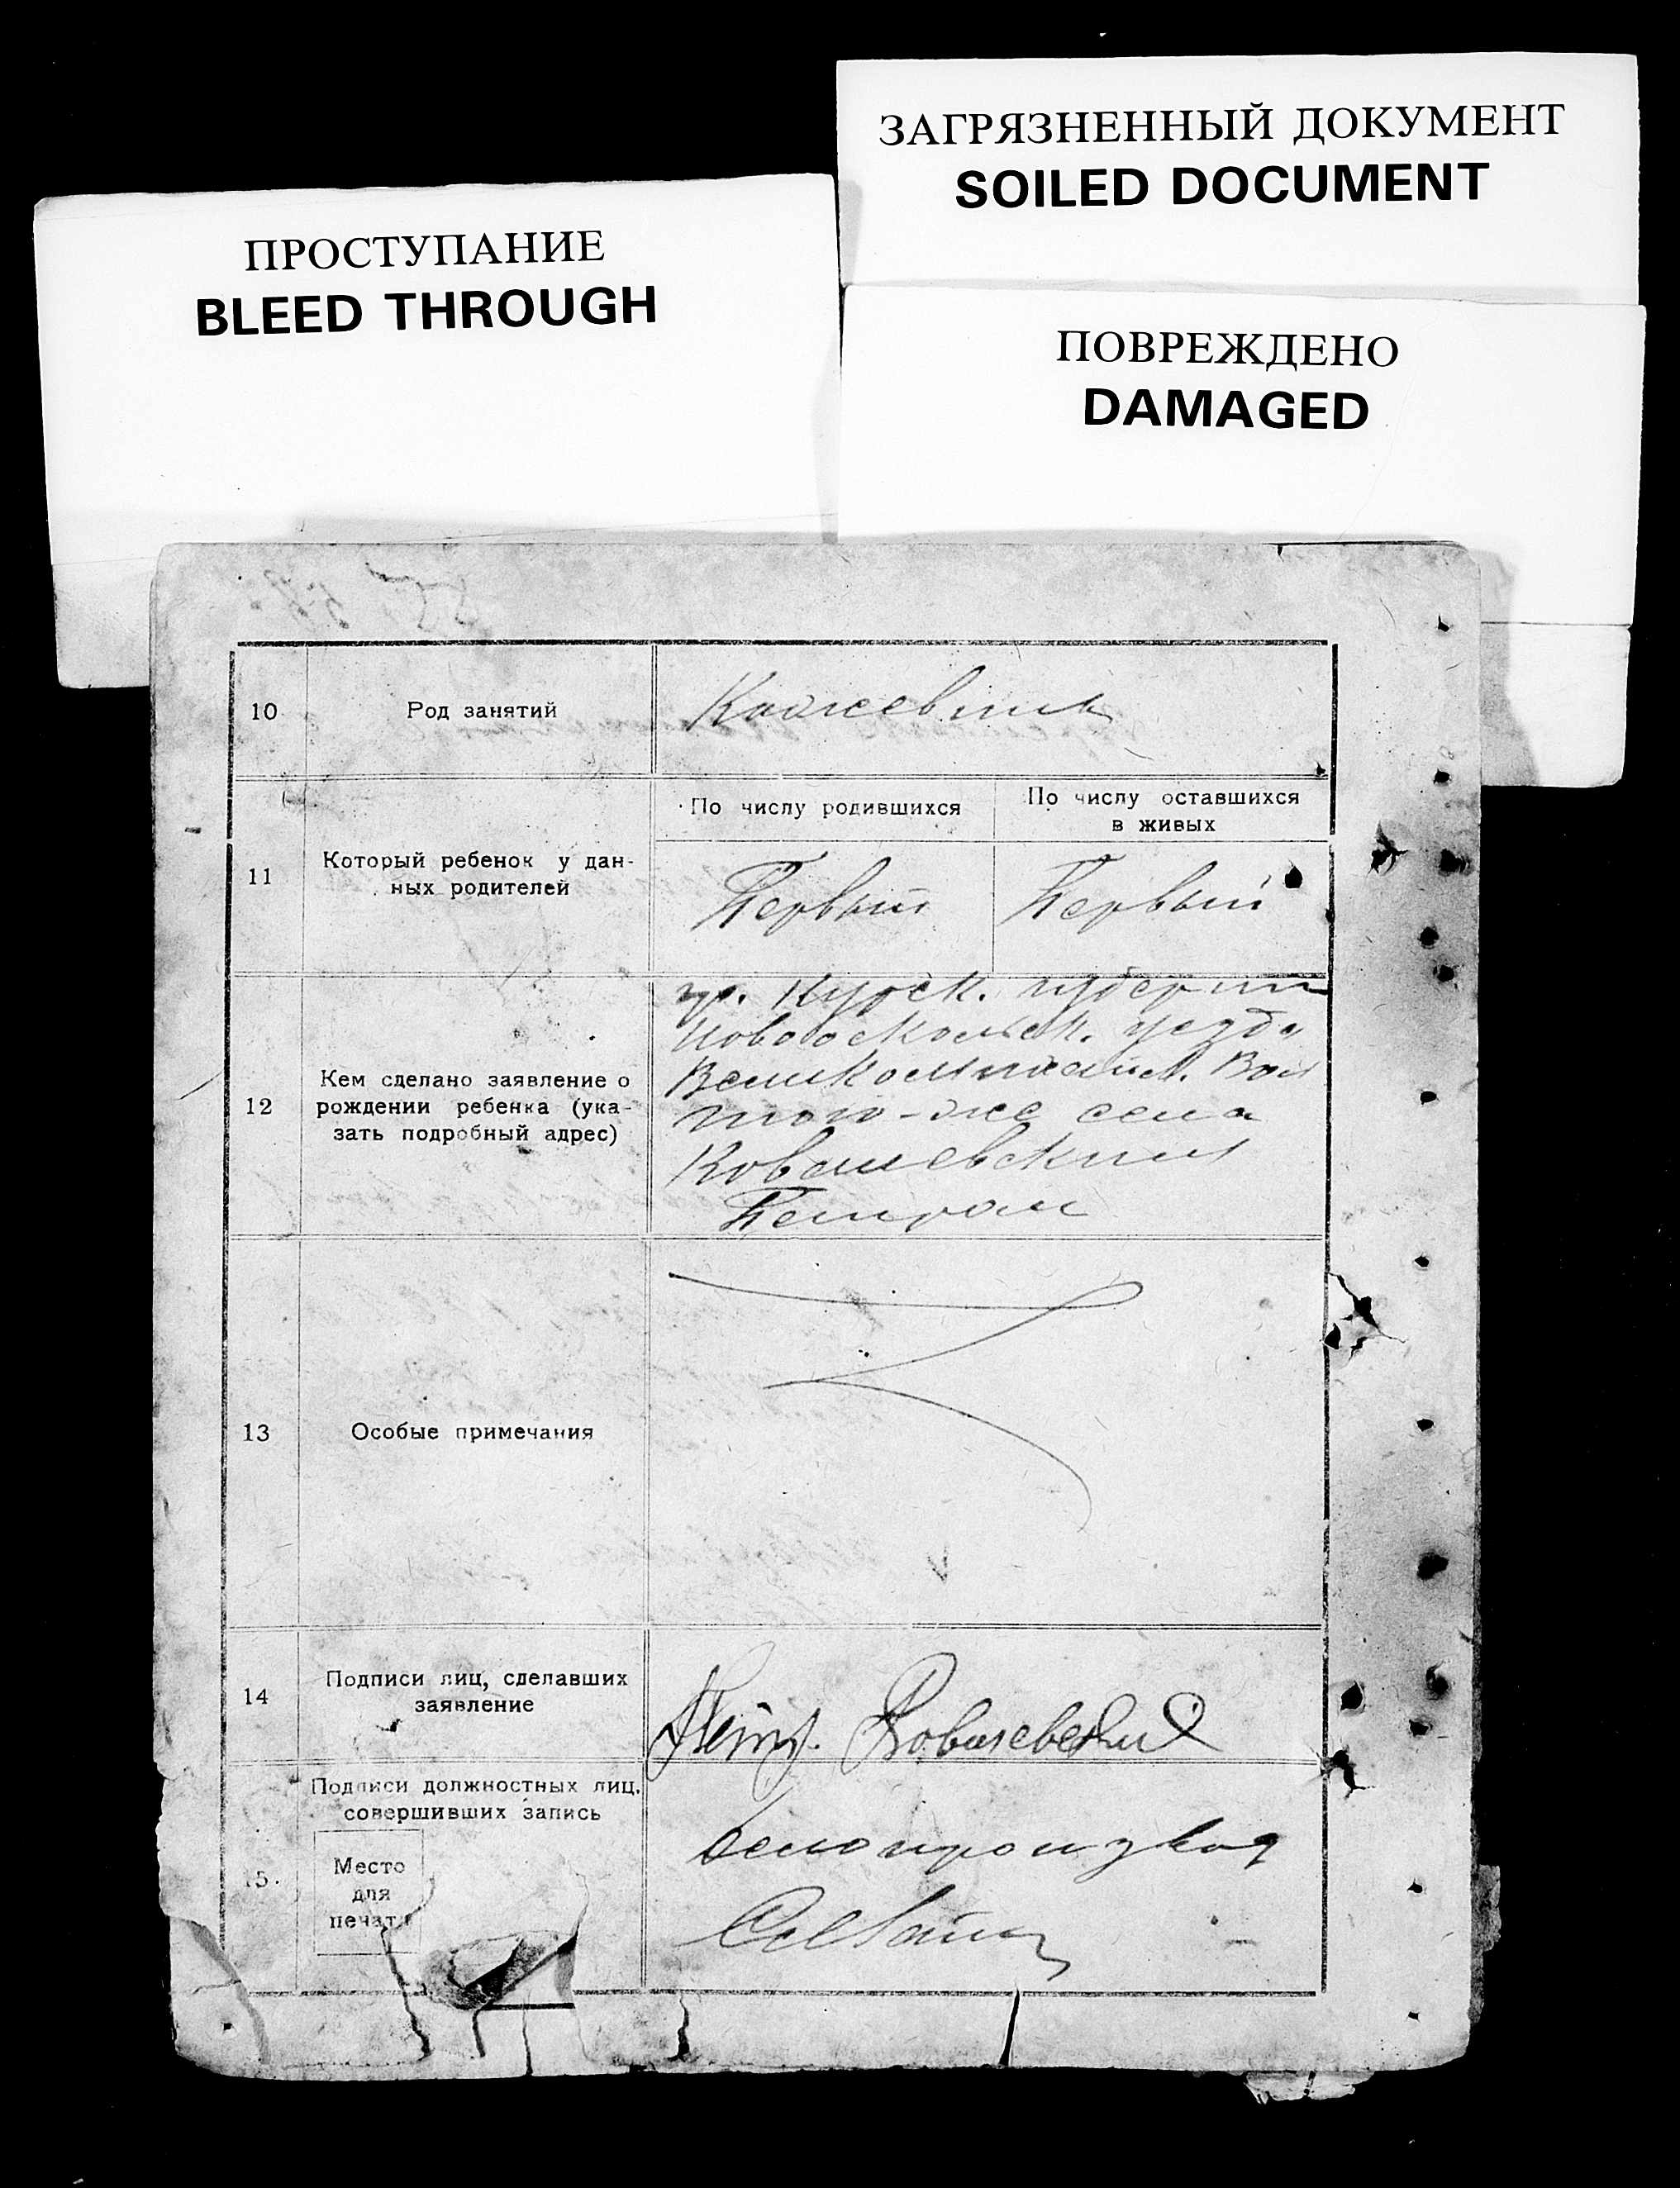 ЗАГРЯЗНЕННЫЙ ДОКУМЕНТ
SOILED DOCUMENT
ПРОСТУПАНИЕ
BLEED THROUGH
ПОВРЕЖДЕНО
DAMAGED
10
Род занятий
Кожевник
11
Который ребенок у дан-
ных родителей
По числу родившихся
По числу оставшихся
в живых
Первый
Первый
12
Кем сделано заявление о
рождении ребенка (ука-
зать подробный адрес)
гр. Курск. губернии
Новооскольск. уезда
Великомихайл. Вол
того-же села
Ковалевским
Петром
13
Особые примечания
14
Подписи лиц, сделавших
заявление
Петр. Ковалевский
15.
Подписи должностных лиц,
совершивших запись
Место
для
печати
Делопроизвод